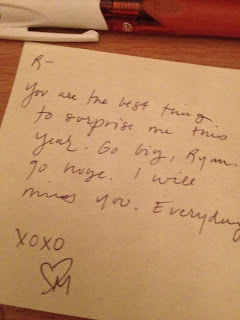 R-
You are the best thing
to surprise me this
year. Go big, Ryan.
go huge. I will
miss you. Everyday
XOXO
M